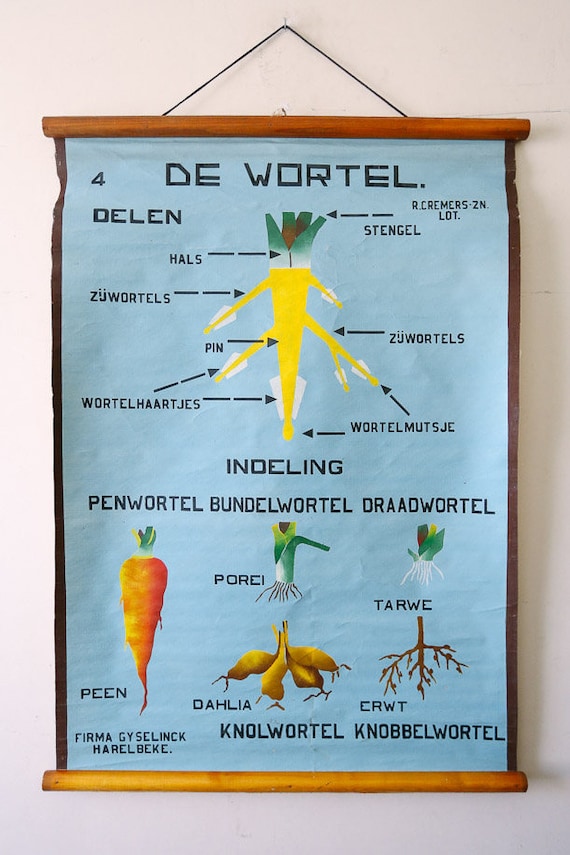 4
DE WORTEL.
R.CREMERS-ZN.
LOT.
DELEN
STENGEL
HALS
ZIJWORTELS
PIN
ZIJWORTELS
WORTELHAARTJES
WORTELMUTSJE
INDELING
PENWORTEL BUNDELWORTEL DRAADWORTEL
POREI
TARWE
PEEN
DAHLIA
ERWT
KNOLWORTEL KNOBBELWORTEL
FIRMA GYSELINCK
HARELBEKE.